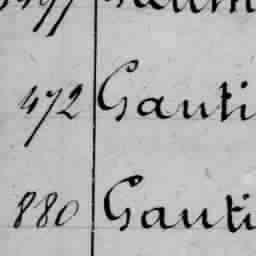 472 Gauti
880 Gauti